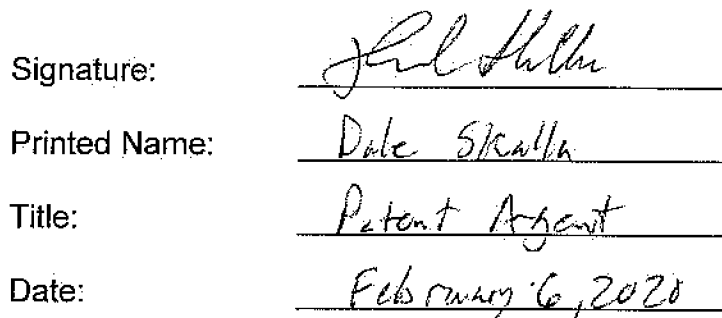 Signature:
Printed Name: Dale Skalla
Title: Patent Agent
Date: February 6, 2020